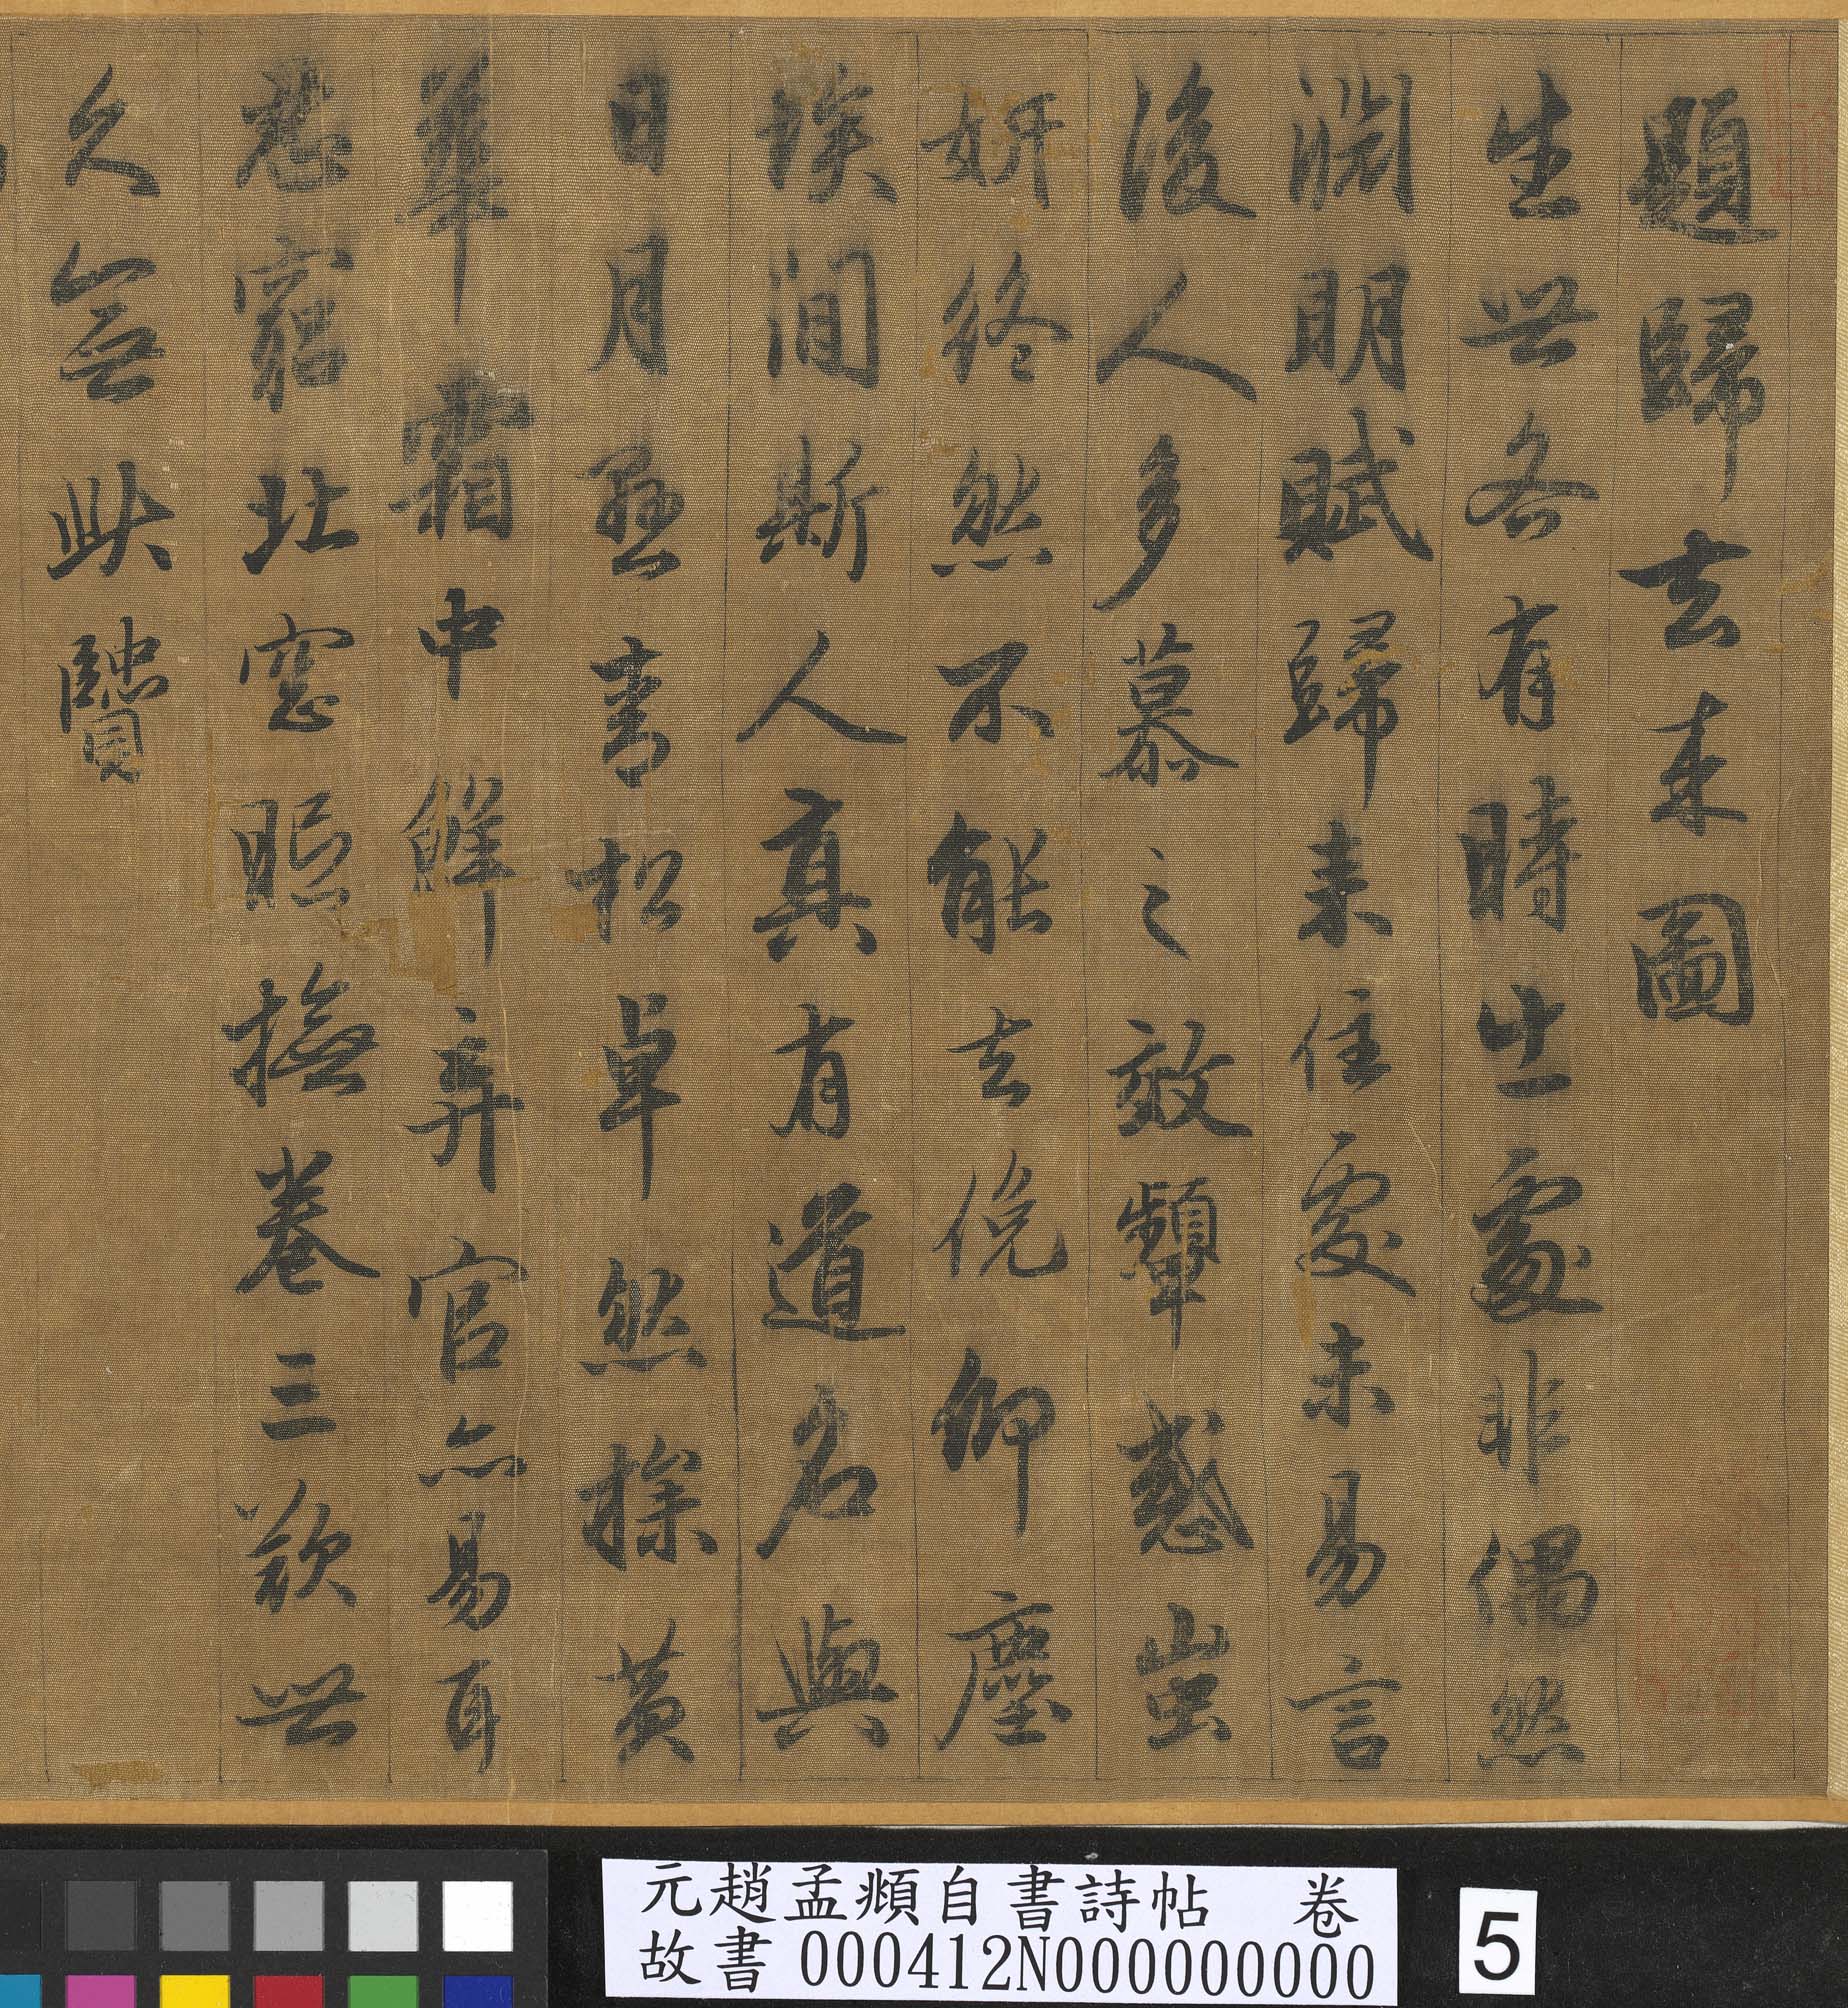 題歸去来圖
生世各有時出處非偶然
淵明賦歸来佳處未易言
後人多慕之效顰惑蚩
妍終然不能去俛仰塵
埃間斯人真有道名與
日月懸青松卓然操黃
華霜中鮮弃官亦易耳
忍窮北窓眠撫卷三歎世
久無此賢
元趙孟頫自書詩帖 卷
故書 000412N000000000
5